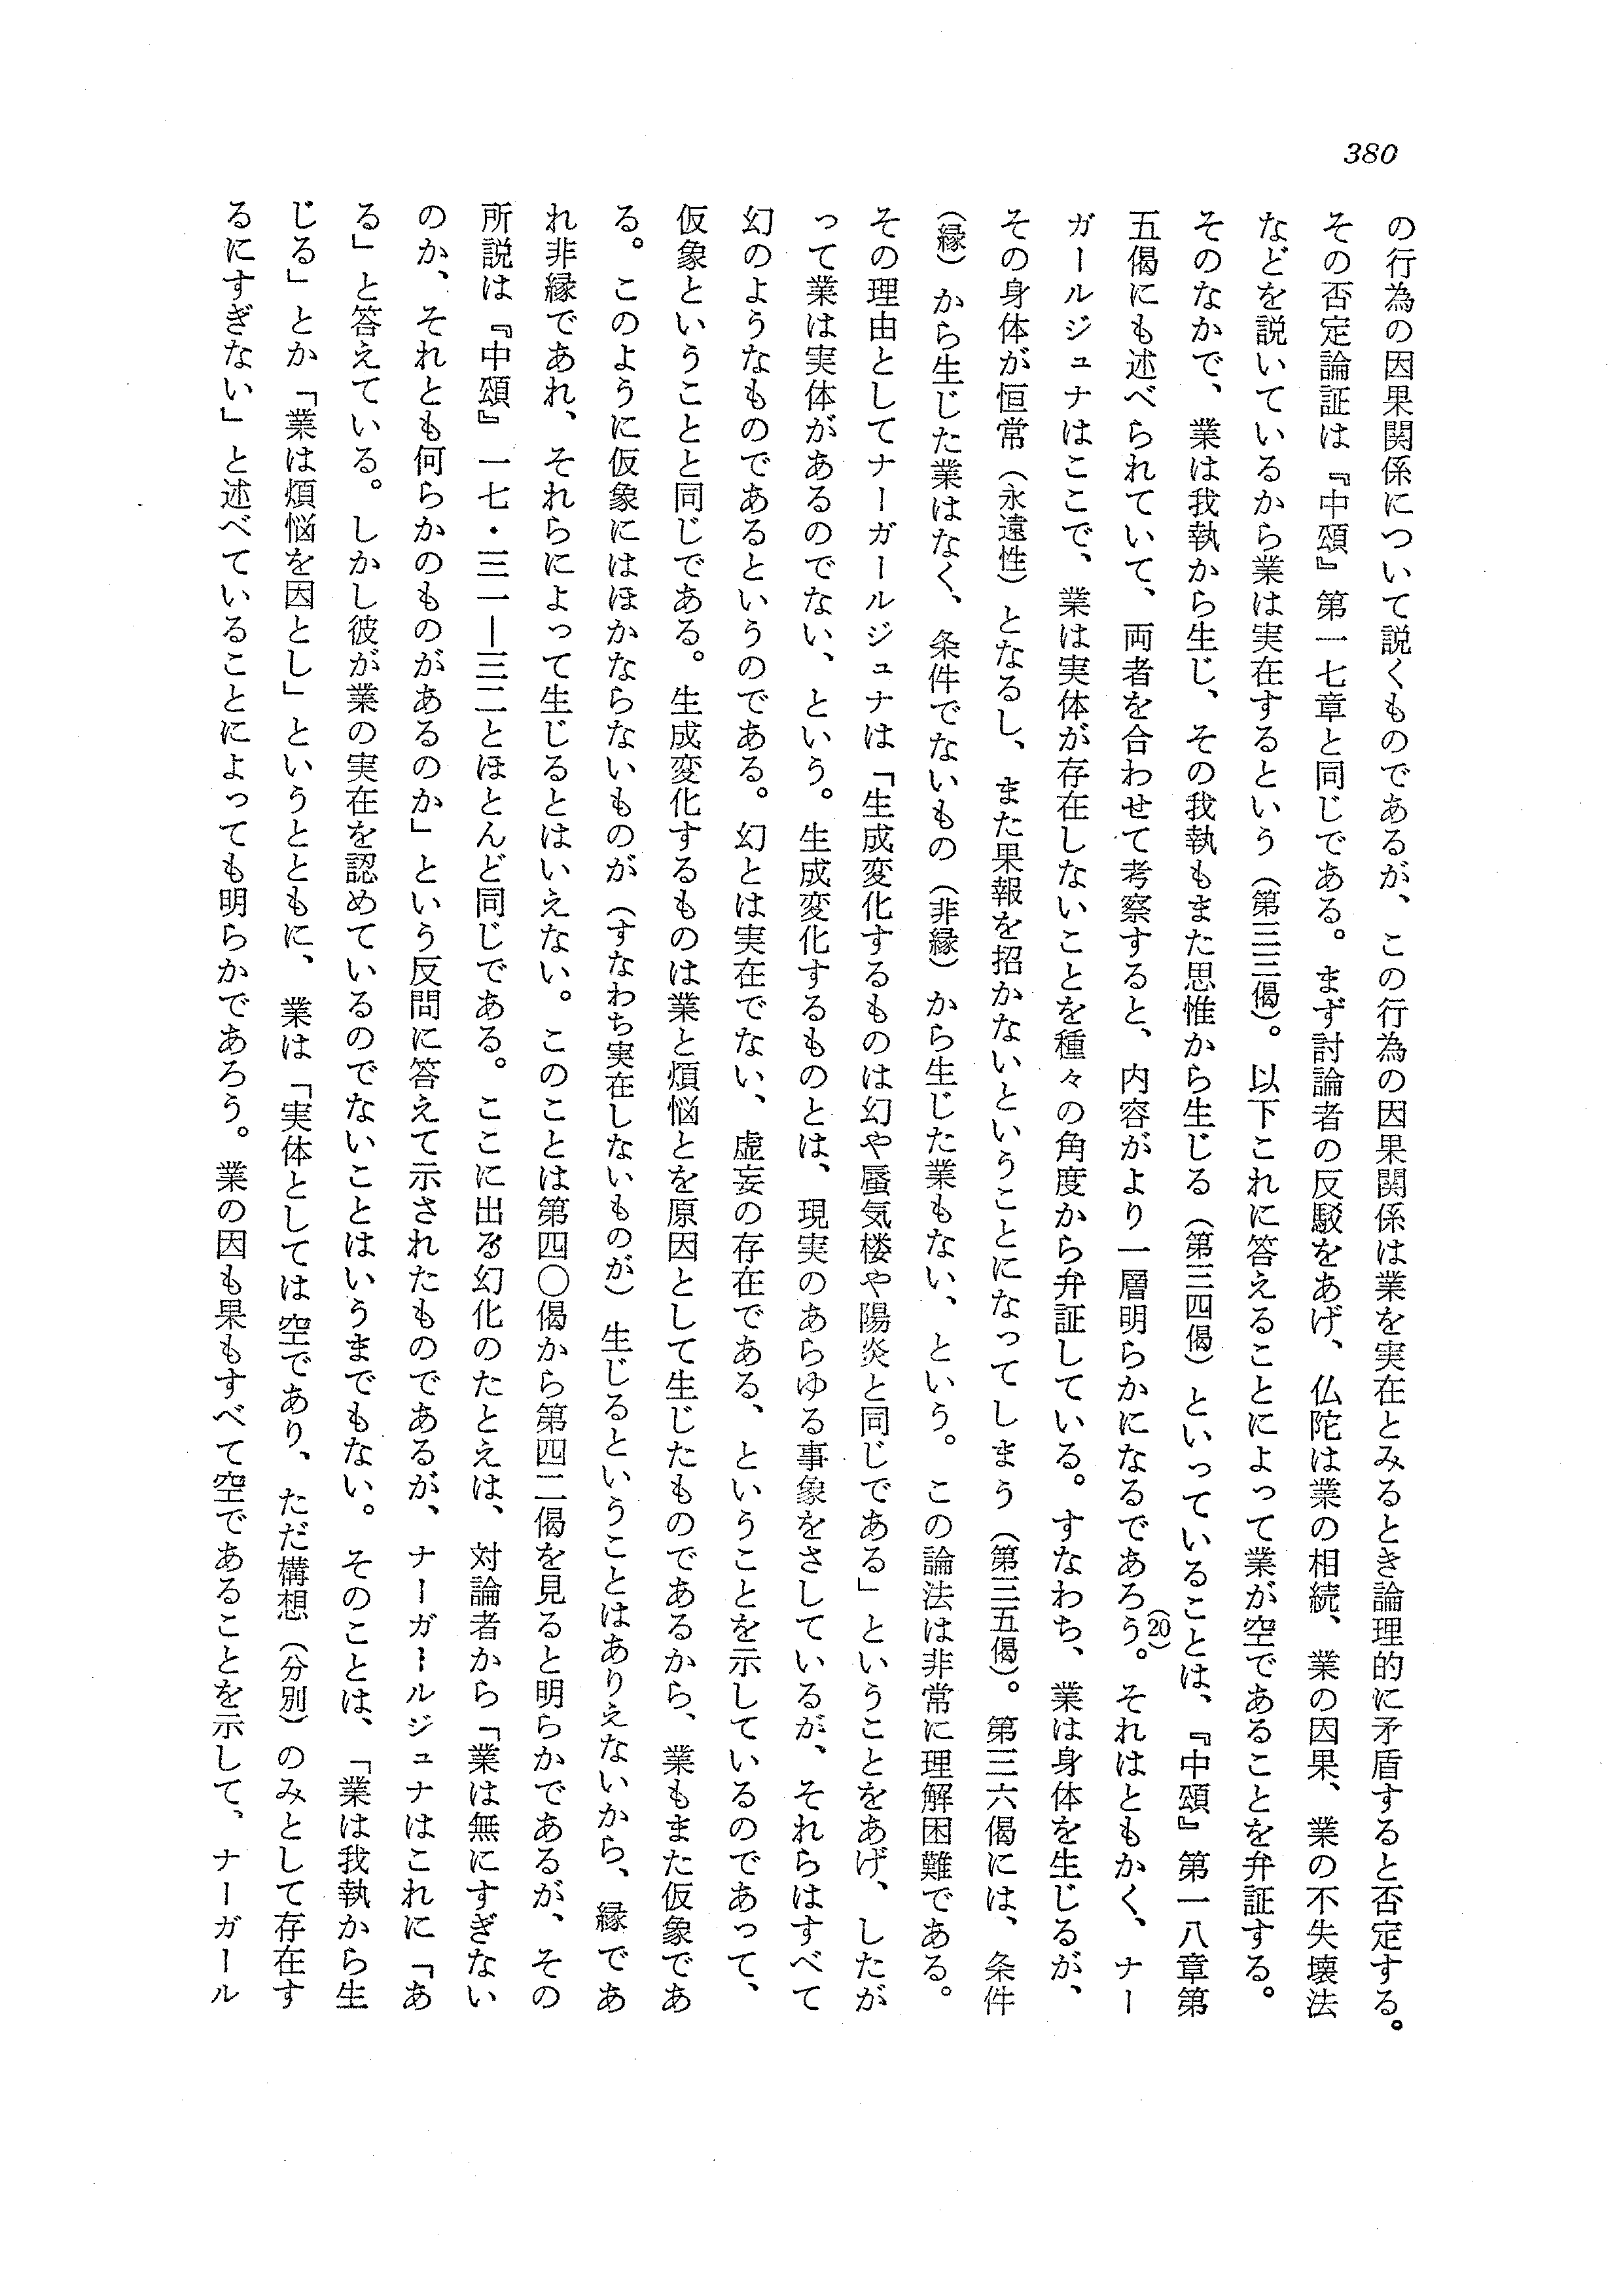 380
の行為の因果関係について説くものであるが、この行為の因果関係は業を実在とみるとき論理的に矛盾すると否定する。
その否定論証は『中頌』第一七章と同じである。まず討論者の反駁をあげ、仏陀は業の相続、業の因果、業の不失壊法
などを説いているから業は実在するという（第三三偈）。以下これに答えることによって業が空であることを弁証する。
そのなかで、業は我執から生じ、その我執もまた思惟から生じる（第三四偈）といっていることは、『中頌』第一八章第
五偈にも述べられていて、両者を合わせて考察すると、内容がより一層明らかになるであろう。(20)それはともかく、ナー
ガールジュナはここで、業は実体が存在しないことを種々の角度から弁証している。すなわち、業は身体を生じるが、
その身体が恒常（永遠性）となるし、また果報を招かないということになってしまう（第三五偈）。第三六偈には、条件
（縁）から生じた業はなく、条件でないもの（非縁）から生じた業もない、という。この論法は非常に理解困難である。
その理由としてナーガールジュナは「生成変化するものは幻や蜃気楼や陽炎と同じである」ということをあげ、したが
って業は実体があるのでない、という。生成変化するものとは、現実のあらゆる事象をさしているが、それらはすべて
幻のようなものであるというのである。幻とは実在でない、虚妄の存在である、ということを示しているのであって、
仮象ということと同じである。生成変化するものは業と煩悩とを原因として生じたものであるから、業もまた仮象であ
る。このように仮象にはほかならないものが（すなわち実在しないものが）生じるということはありえないから、縁であ
れ非縁であれ、それらによって生じるとはいえない。このことは第四〇偈から第四二偈を見ると明らかであるが、その
所説は『中頌』一七・三一―三二とほとんど同じである。ここに出る幻化のたとえは、対論者から「業は無にすぎない
のか、それとも何らかのものがあるのか」という反問に答えて示されたものであるが、ナーガールジュナはこれに「あ
る」と答えている。しかし彼が業の実在を認めているのでないことはいうまでもない。そのことは、「業は我執から生
じる」とか「業は煩悩を因とし」というとともに、業は「実体としては空であり、ただ構想（分別）のみとして存在す
るにすぎない」と述べていることによっても明らかであろう。業の因も果もすべて空であることを示して、ナーガール